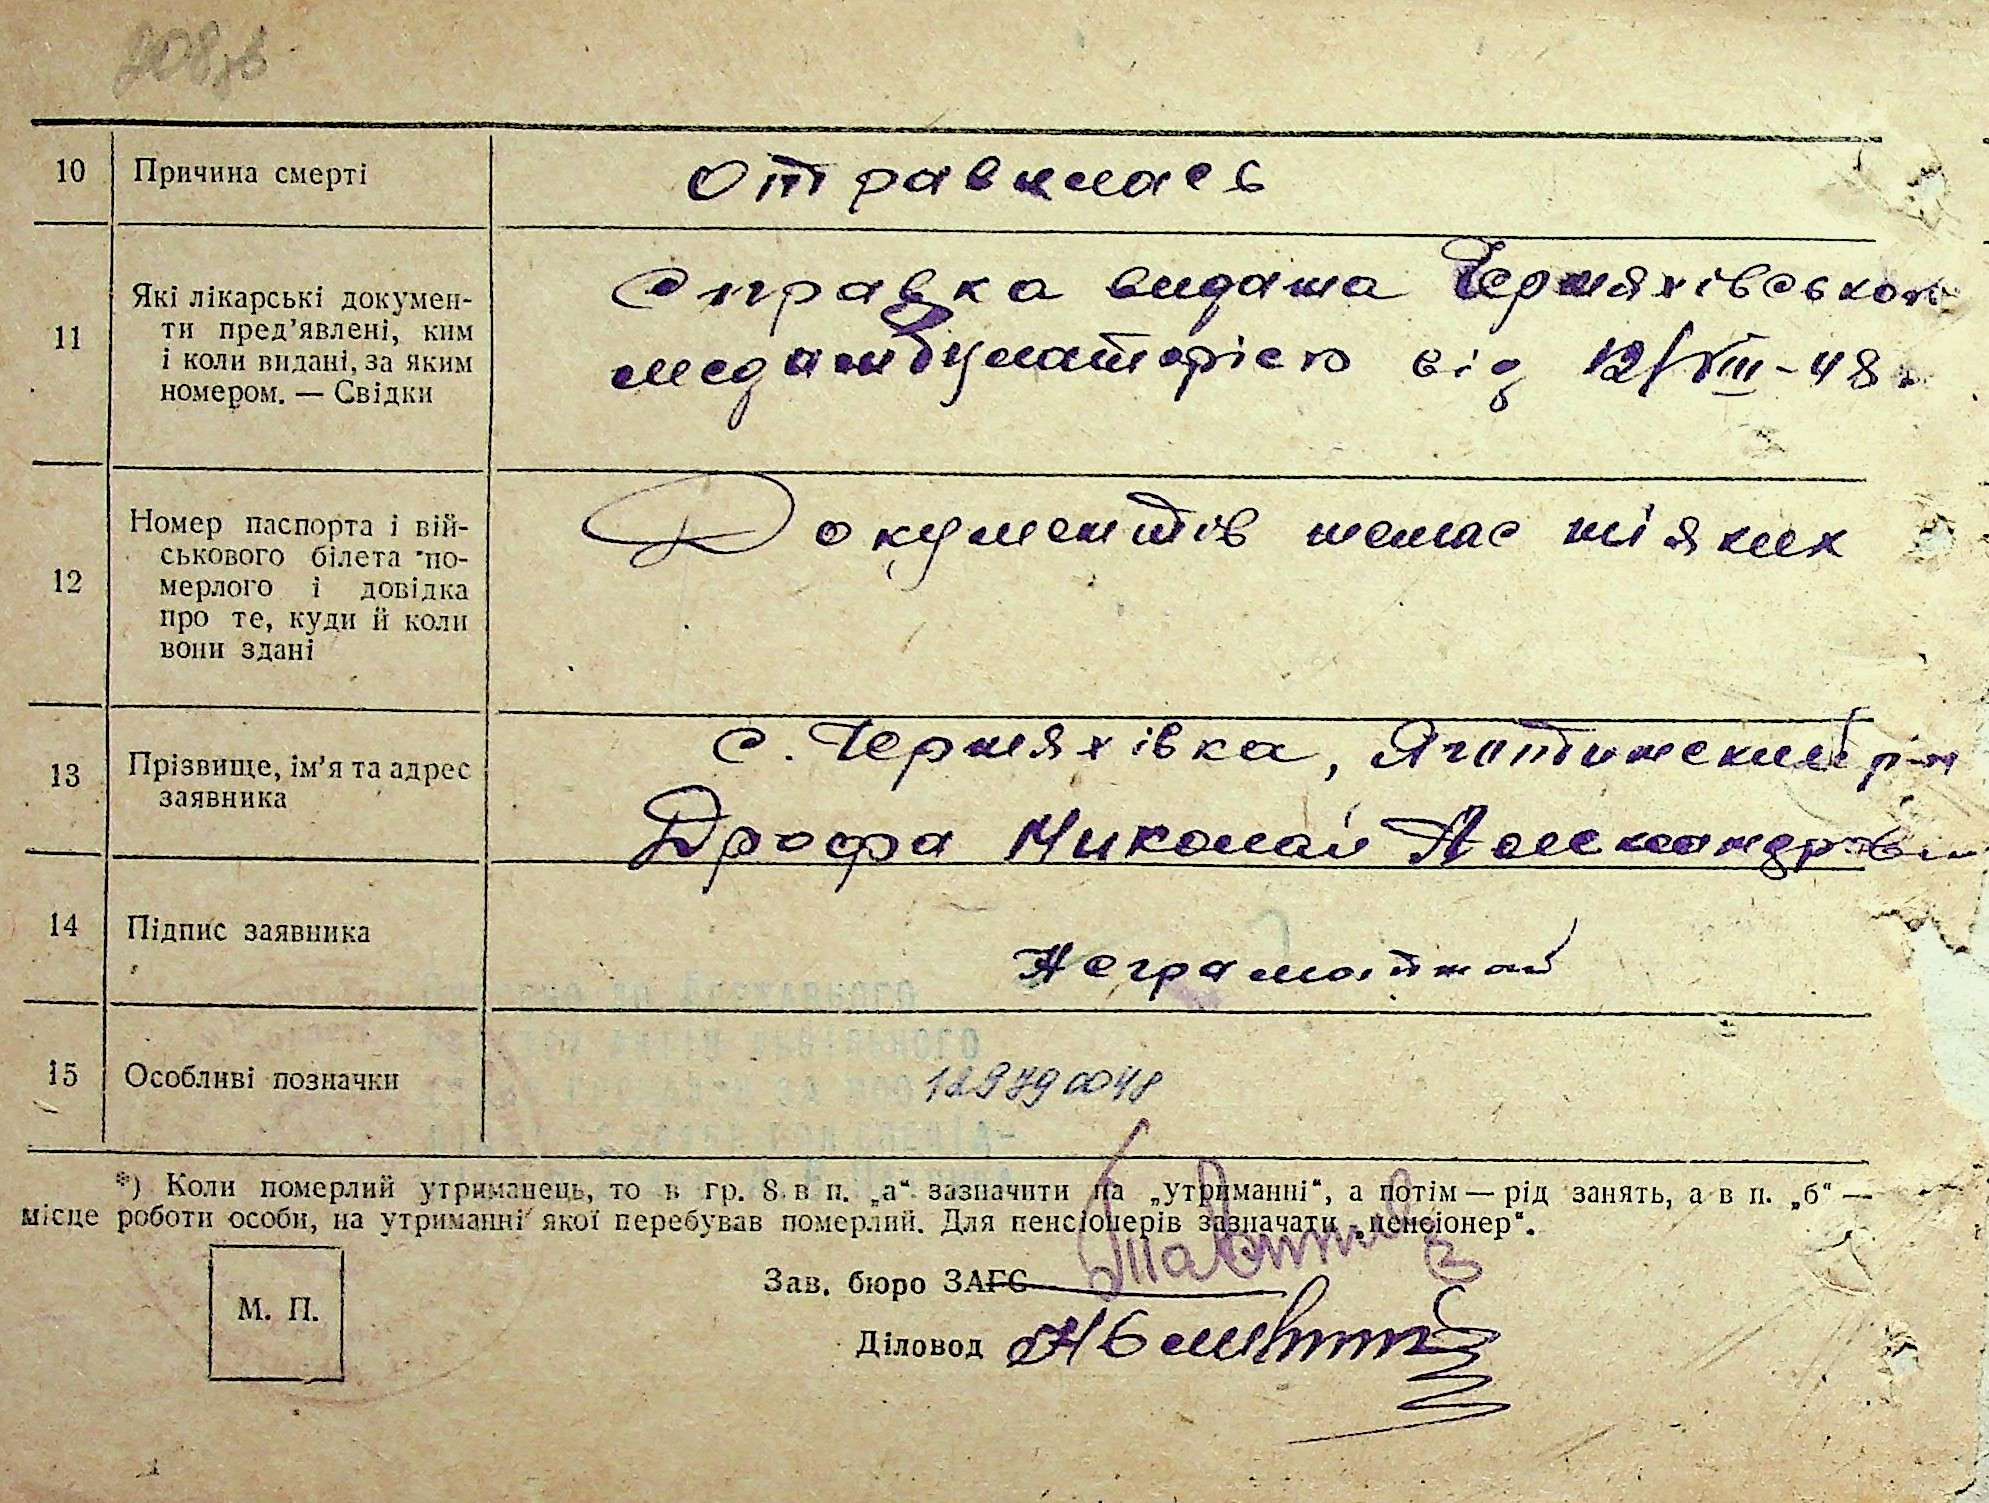 208зв
10 Причина смерті отравилась
11 Які лікарські докумен- Справка видана Черняхівською
ти пред'явлені, ким медамбулаторією від 12/VIII-48 г
і коли видані, за яким
номером. — Свідки
12 Номер паспорта і вій- Документів немає ніяких
ськового білета по-
мерлого і довідка
про те, куди й коли
вони здані
13 Прізвище, ім'я та адрес с. Черняхівка, Яготинский р-н
заявника Дрофа Николай Александрович
14 Підпис заявника Неграмотной
15 Особливі позначки
*) Коли померлий утриманець, то в гр. 8 в п. „а“ зазначити на „утриманні“, а потім — рід занять, а в п. „б“ —
місце роботи особи, на утриманні якої перебував померлий. Для пенсіонерів зазначати „пенсіонер“.
Зав. бюро ЗАГС
М. П.
Діловод